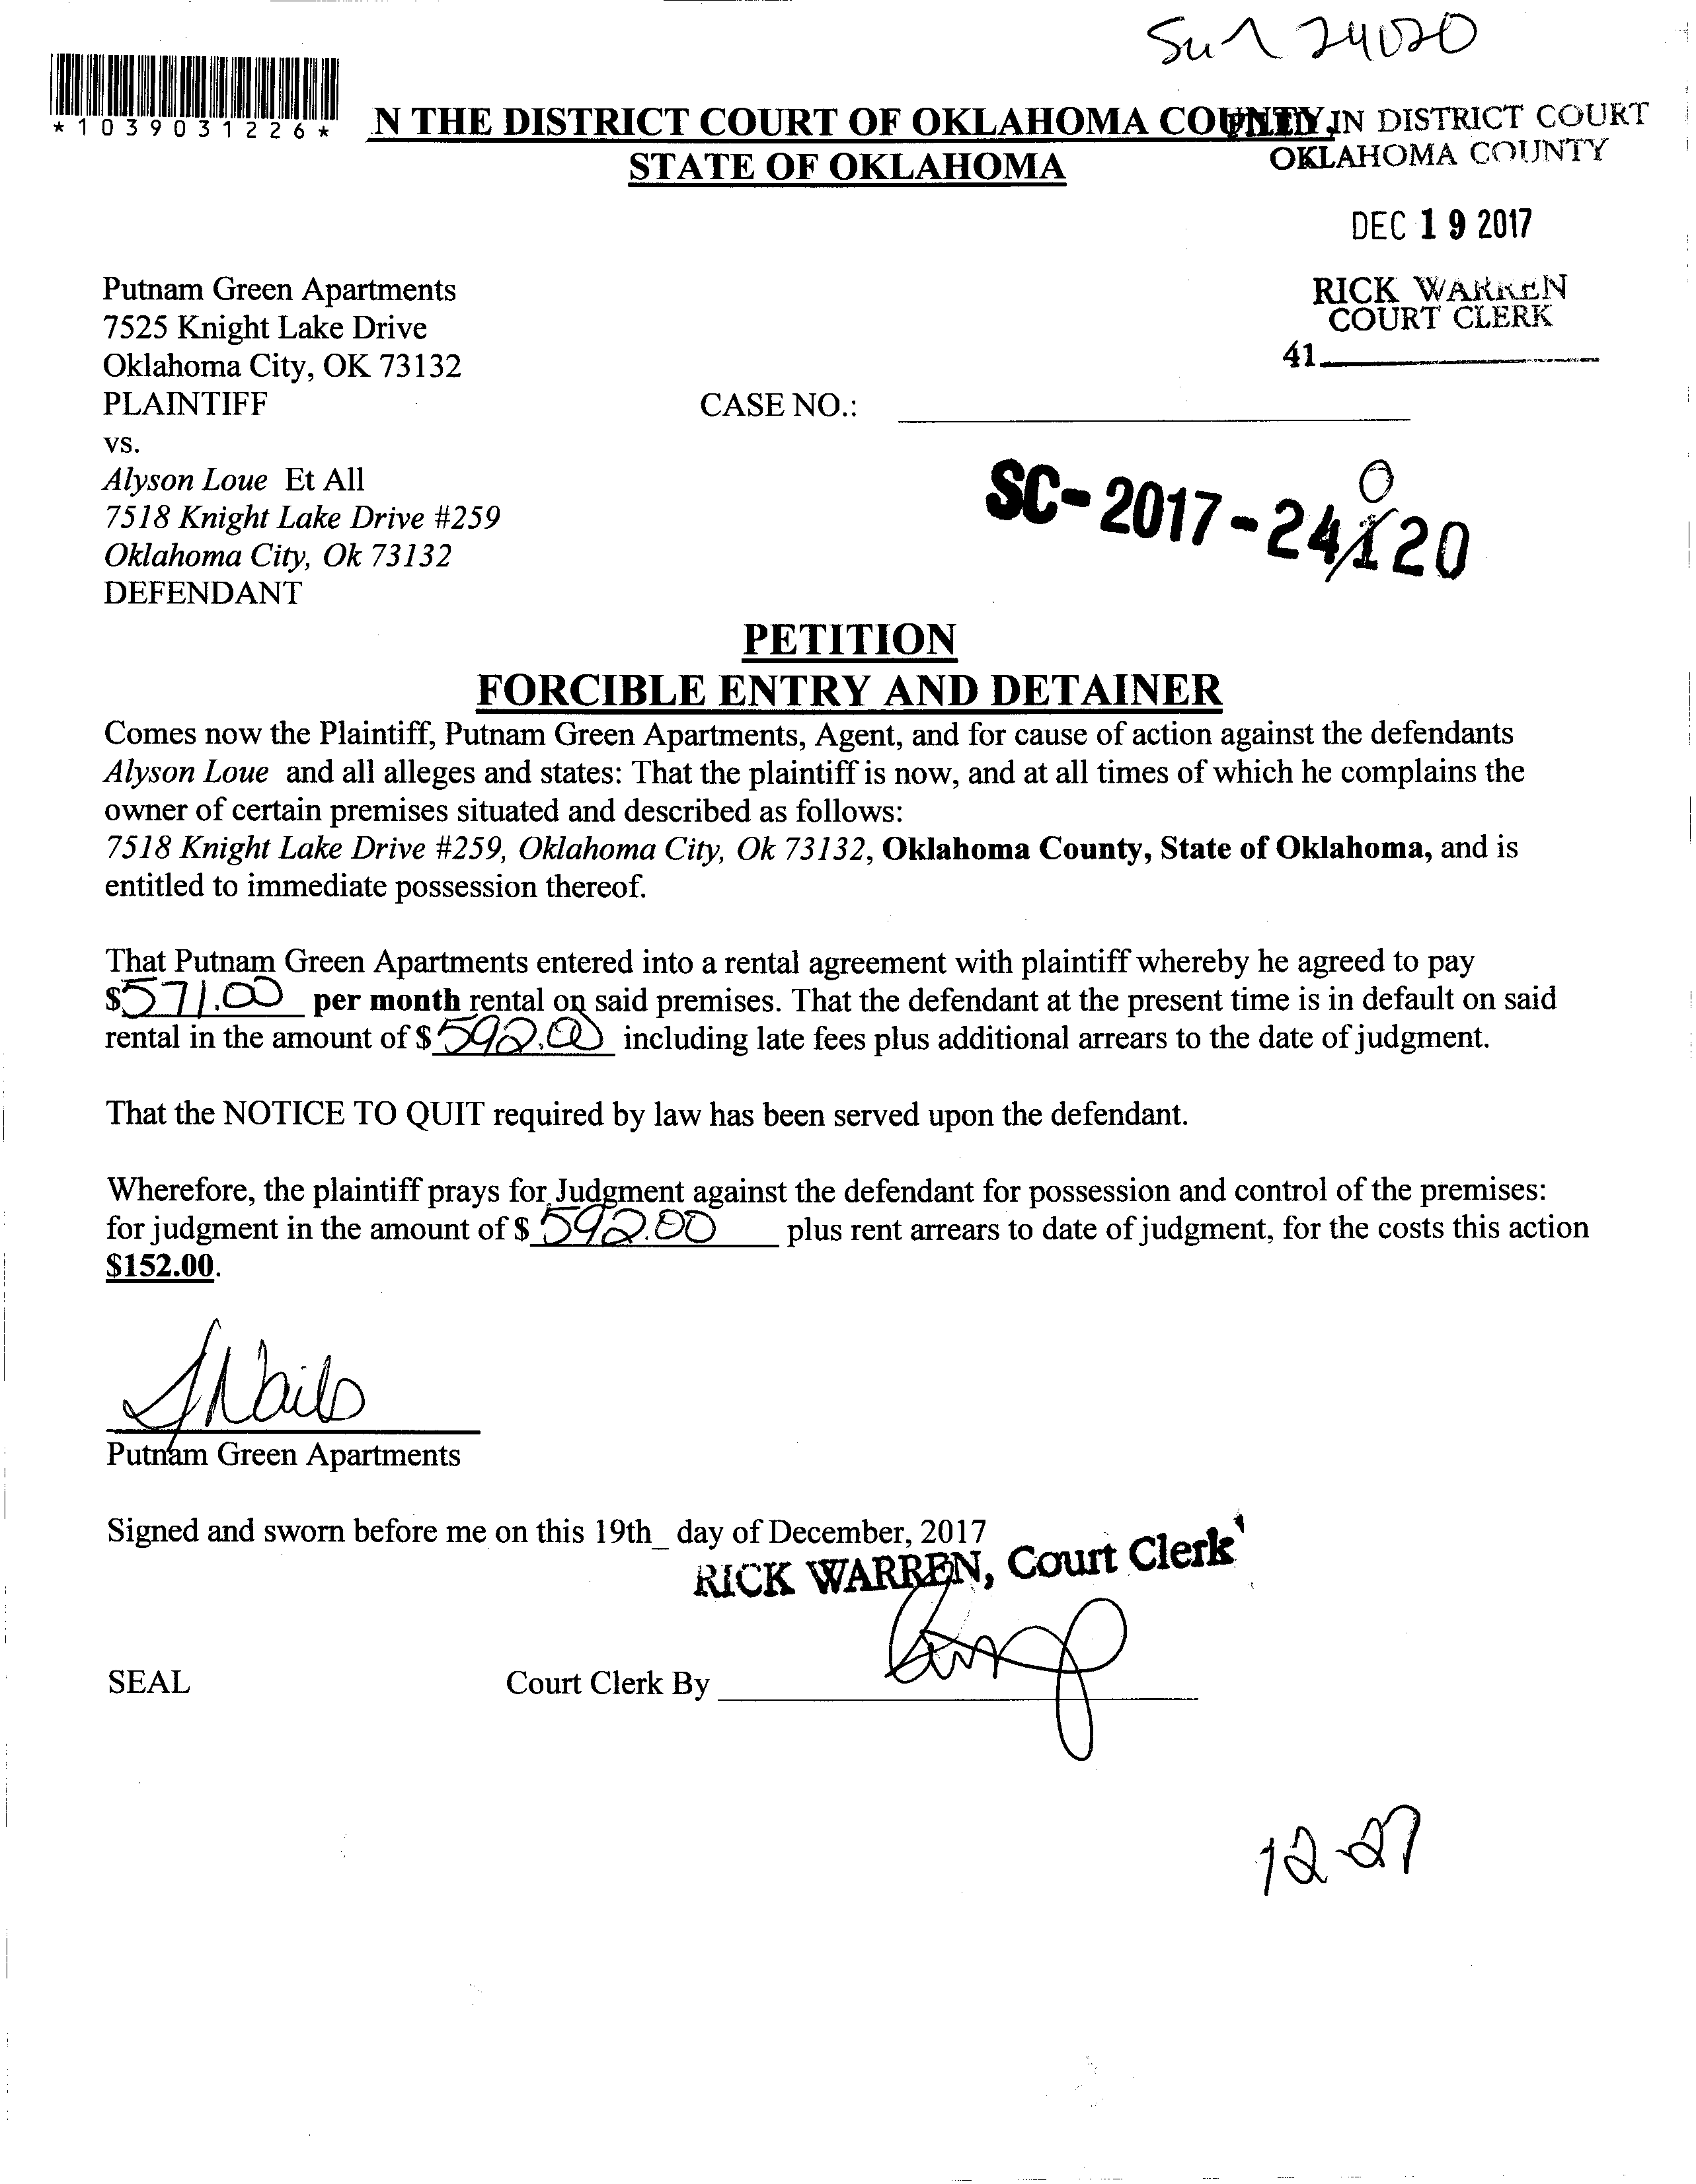 Sun 24020
*1039031226*
N THE DISTRICT COURT OF OKLAHOMA COUNTY,
FILED IN DISTRICT COURT
STATE OF OKLAHOMA
OKLAHOMA COUNTY
DEC 19 2017
Putnam Green Apartments
RICK WARREN
7525 Knight Lake Drive
COURT CLERK
Oklahoma City, OK 73132
41
PLAINTIFF
CASE NO.:
vs.
Alyson Loue Et All
SC-2017-24120
0
7518 Knight Lake Drive #259
Oklahoma City, Ok 73132
DEFENDANT
PETITION
FORCIBLE ENTRY AND DETAINER
Comes now the Plaintiff, Putnam Green Apartments, Agent, and for cause of action against the defendants
Alyson Loue and all alleges and states: That the plaintiff is now, and at all times of which he complains the
owner of certain premises situated and described as follows:
7518 Knight Lake Drive #259, Oklahoma City, Ok 73132, Oklahoma County, State of Oklahoma, and is
entitled to immediate possession thereof.
That Putnam Green Apartments entered into a rental agreement with plaintiff whereby he agreed to pay
$571.00 per month rental on said premises. That the defendant at the present time is in default on said
rental in the amount of $592.00 including late fees plus additional arrears to the date of judgment.
That the NOTICE TO QUIT required by law has been served upon the defendant.
Wherefore, the plaintiff prays for Judgment against the defendant for possession and control of the premises:
for judgment in the amount of $592.00 plus rent arrears to date of judgment, for the costs this action
$152.00.
Putnam Green Apartments
Signed and sworn before me on this 19th_ day of December, 2017
RICK WARREN, Court Clerk
SEAL
Court Clerk By
12-27